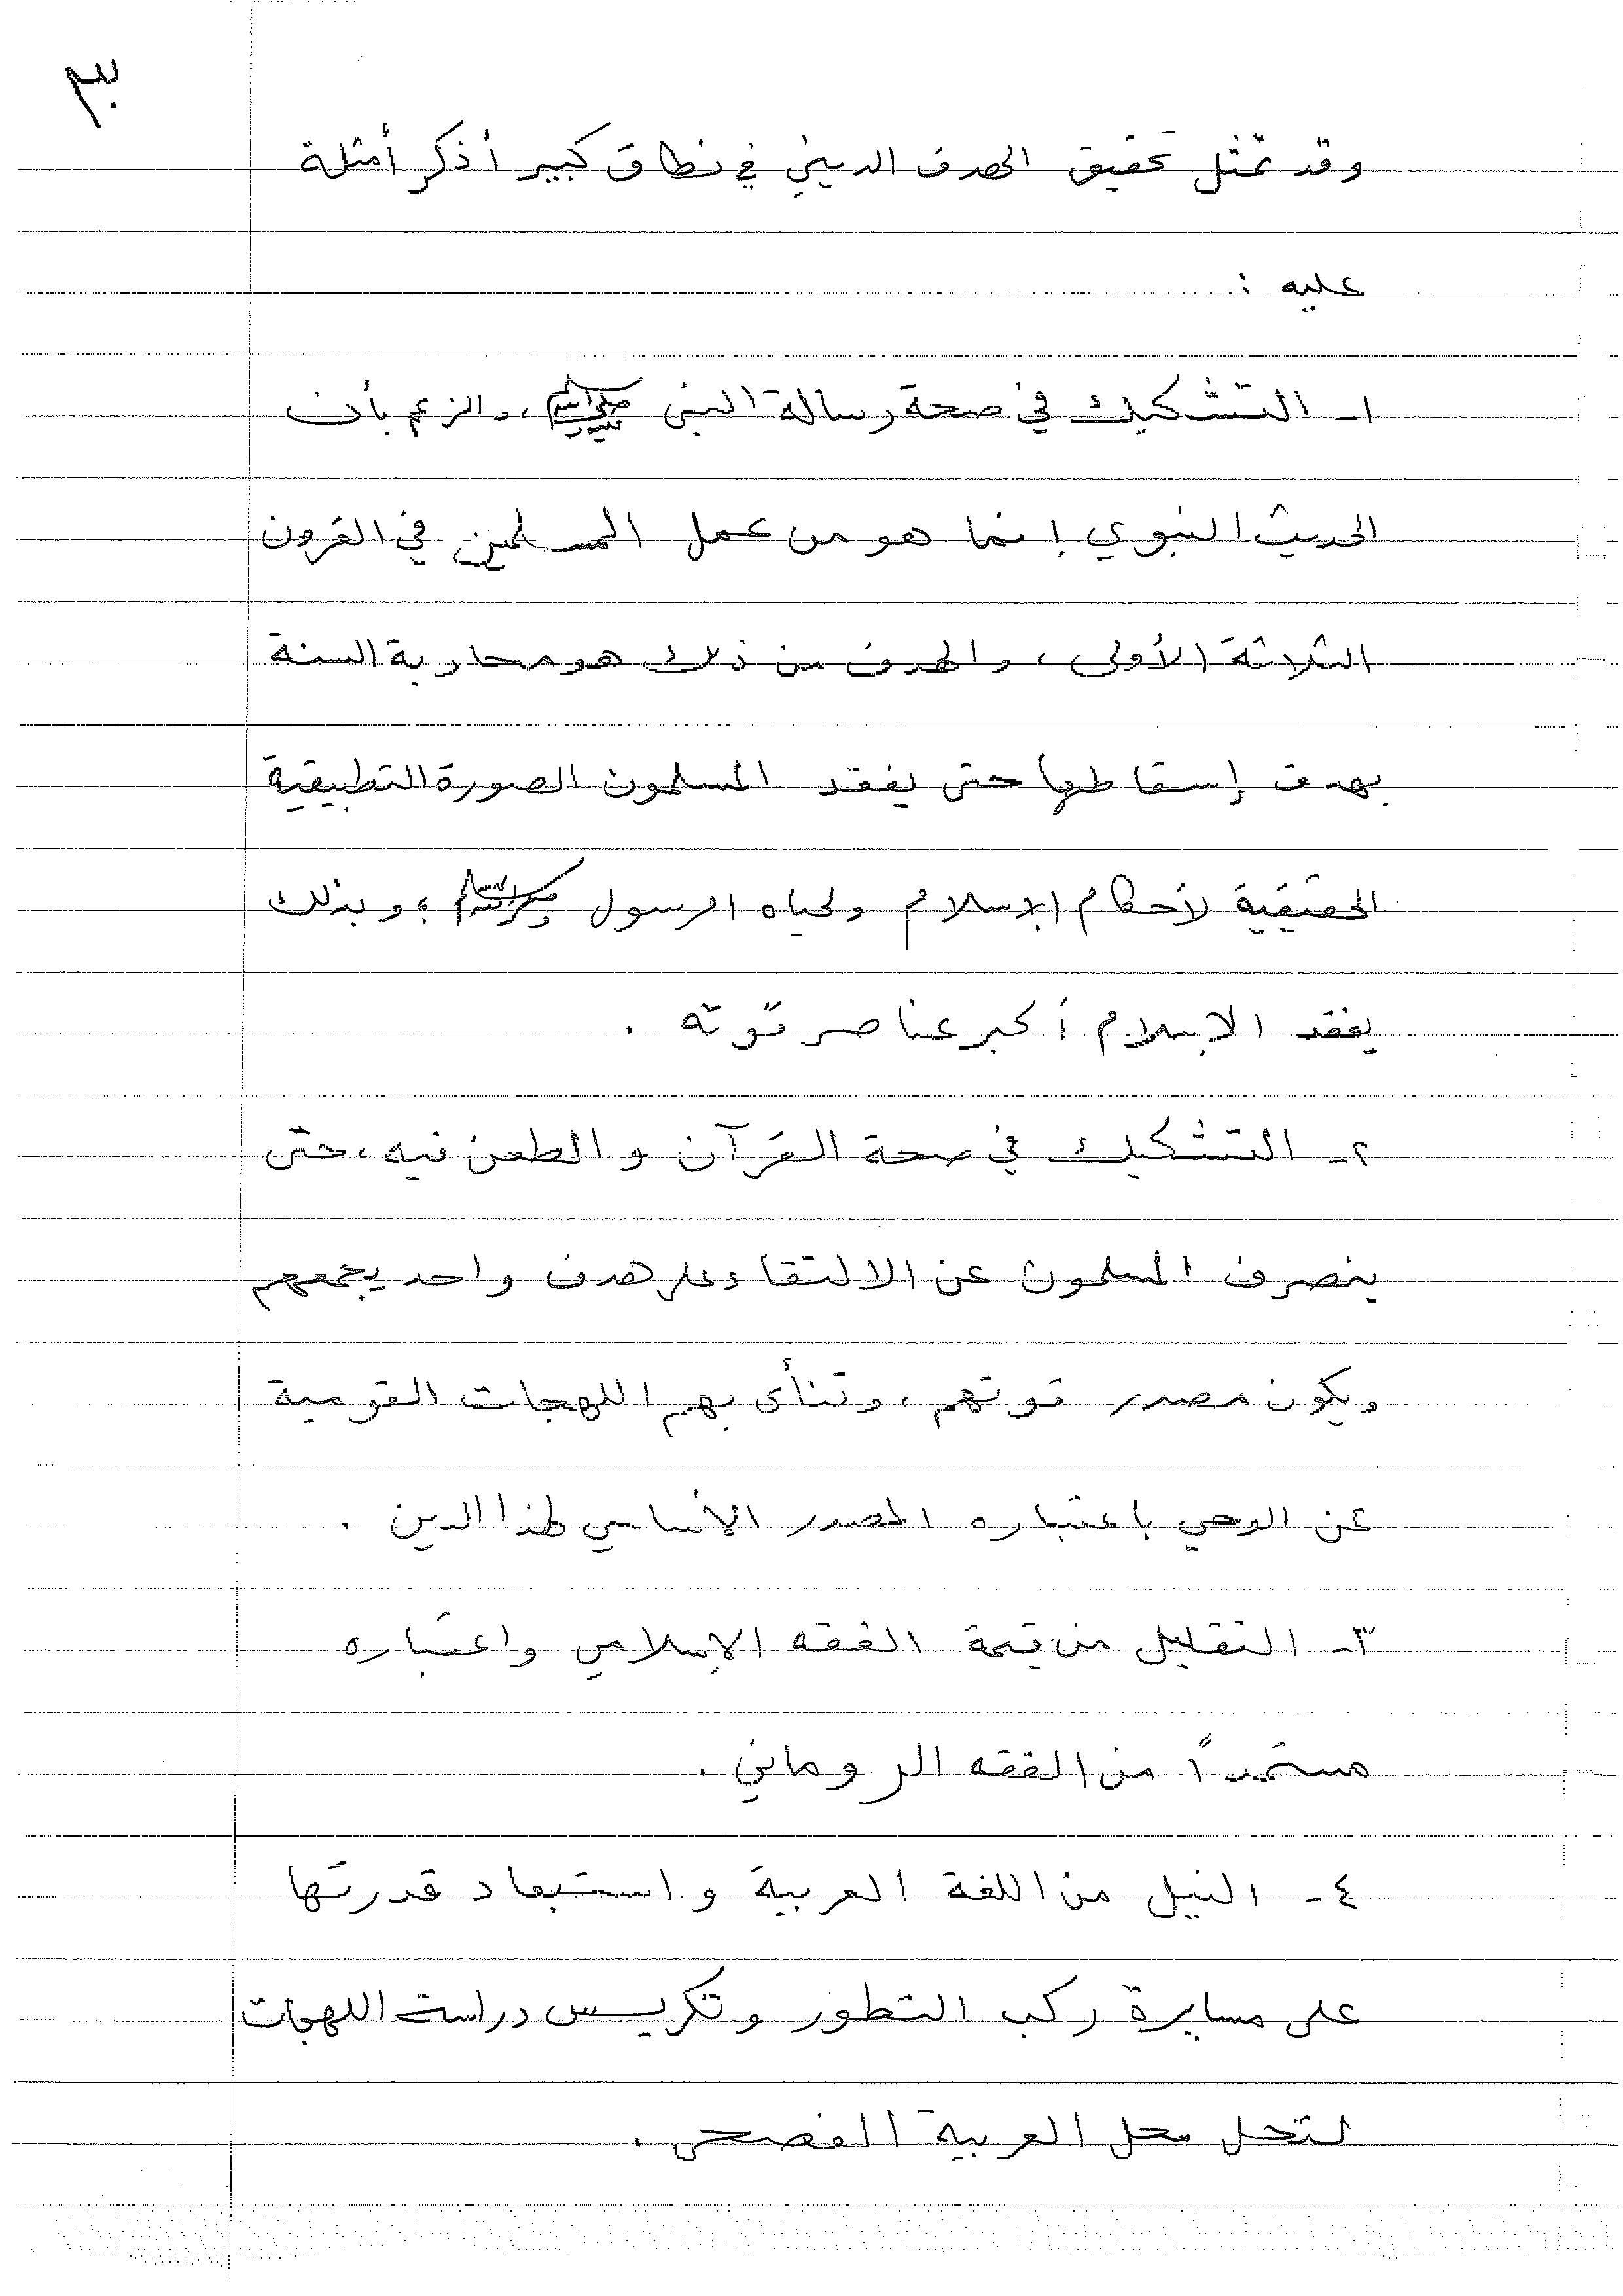 ٣٠
وقد تمثل تحقيق الهدف الديني في نطاق كبير أذكر أمثلة
عليه :
١- التشكيك في صحة رسالة النبي ﷺ ، والزعم بأن
الحديث النبوي إنما هو من عمل المسلمين في القرون
الثلاثة الأولى ، والهدف من ذلك هو محاربة السنة
بهدف إسقاطها حتى يفقد المسلمون الصورة التطبيقية
الحقيقية لأحكام الإسلام ولحياه الرسول ﷺ ؛ وبذلك
يفقد الإسلام أكبر عناصر قوته .
٢- التشكيك في صحة القرآن والطعن فيه ، حتى
ينصرف المسلمون عن الالتقاء على هدف واحد يجمعهم
ويكون مصدر قوتهم ، وتنأى بهم اللهجات القومية
عن الوحي باعتباره المصدر الأساسي لهذا الدين .
٣- التقليل من قيمة الفقه الإسلامي واعتباره
مستمداً من الفقه الروماني .
٤- النيل من اللغة العربية واستبعاد قدرتها
على مسايرة ركب التطور وتكريس دراسة اللهجات
لتحل محل العربية الفصحى .